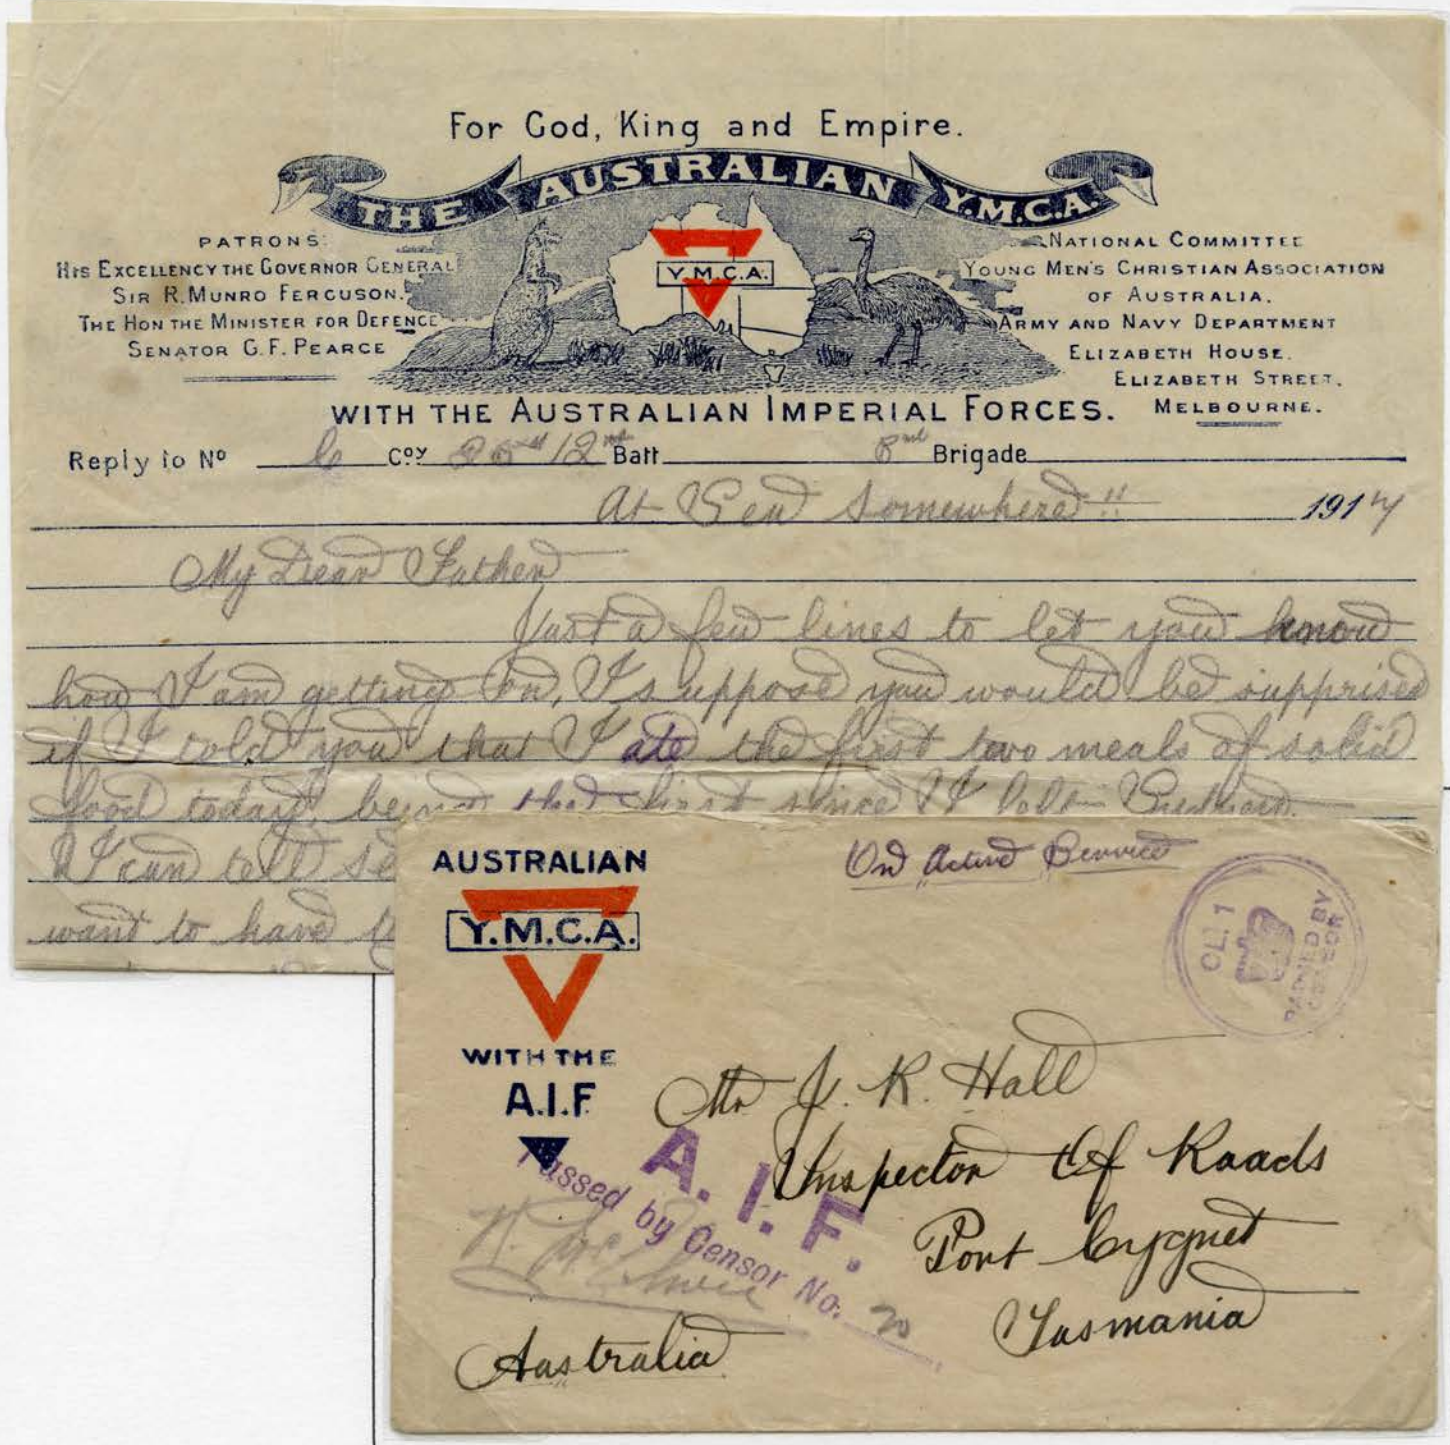 For God, King and Empire.
THE AUSTRALIAN Y.M.C.A.
PATRONS:
HIS EXCELLENCY THE GOVERNOR GENERAL
SIR R. MUNRO FERGUSON.
THE HON THE MINISTER FOR DEFENCE
SENATOR G.F. PEARCE
Y.M.C.A.
NATIONAL COMMITTEE
YOUNG MEN'S CHRISTIAN ASSOCIATION
OF AUSTRALIA.
ARMY AND NAVY DEPARTMENT
ELIZABETH HOUSE.
ELIZABETH STREET,
MELBOURNE.
WITH THE AUSTRALIAN IMPERIAL FORCES.
Reply to No Coy 12 Batt Brigade
At Sea Somewhere!! 1917
My Dear Father
Just a few lines to let you know
how I am getting on, I suppose you would be supprised
if I told you that I ate the first two meals of solid
food today being the first since I left
I can tell
want to have
AUSTRALIAN
Y.M.C.A.
WITH THE
A.I.F.
On Active Service
PASSED BY
CENSOR
Mr J. R. Hall
Inspector Of Roads
Port Cygnet
Tasmania
Australia
A.I.F.
Passed by Censor No. 20